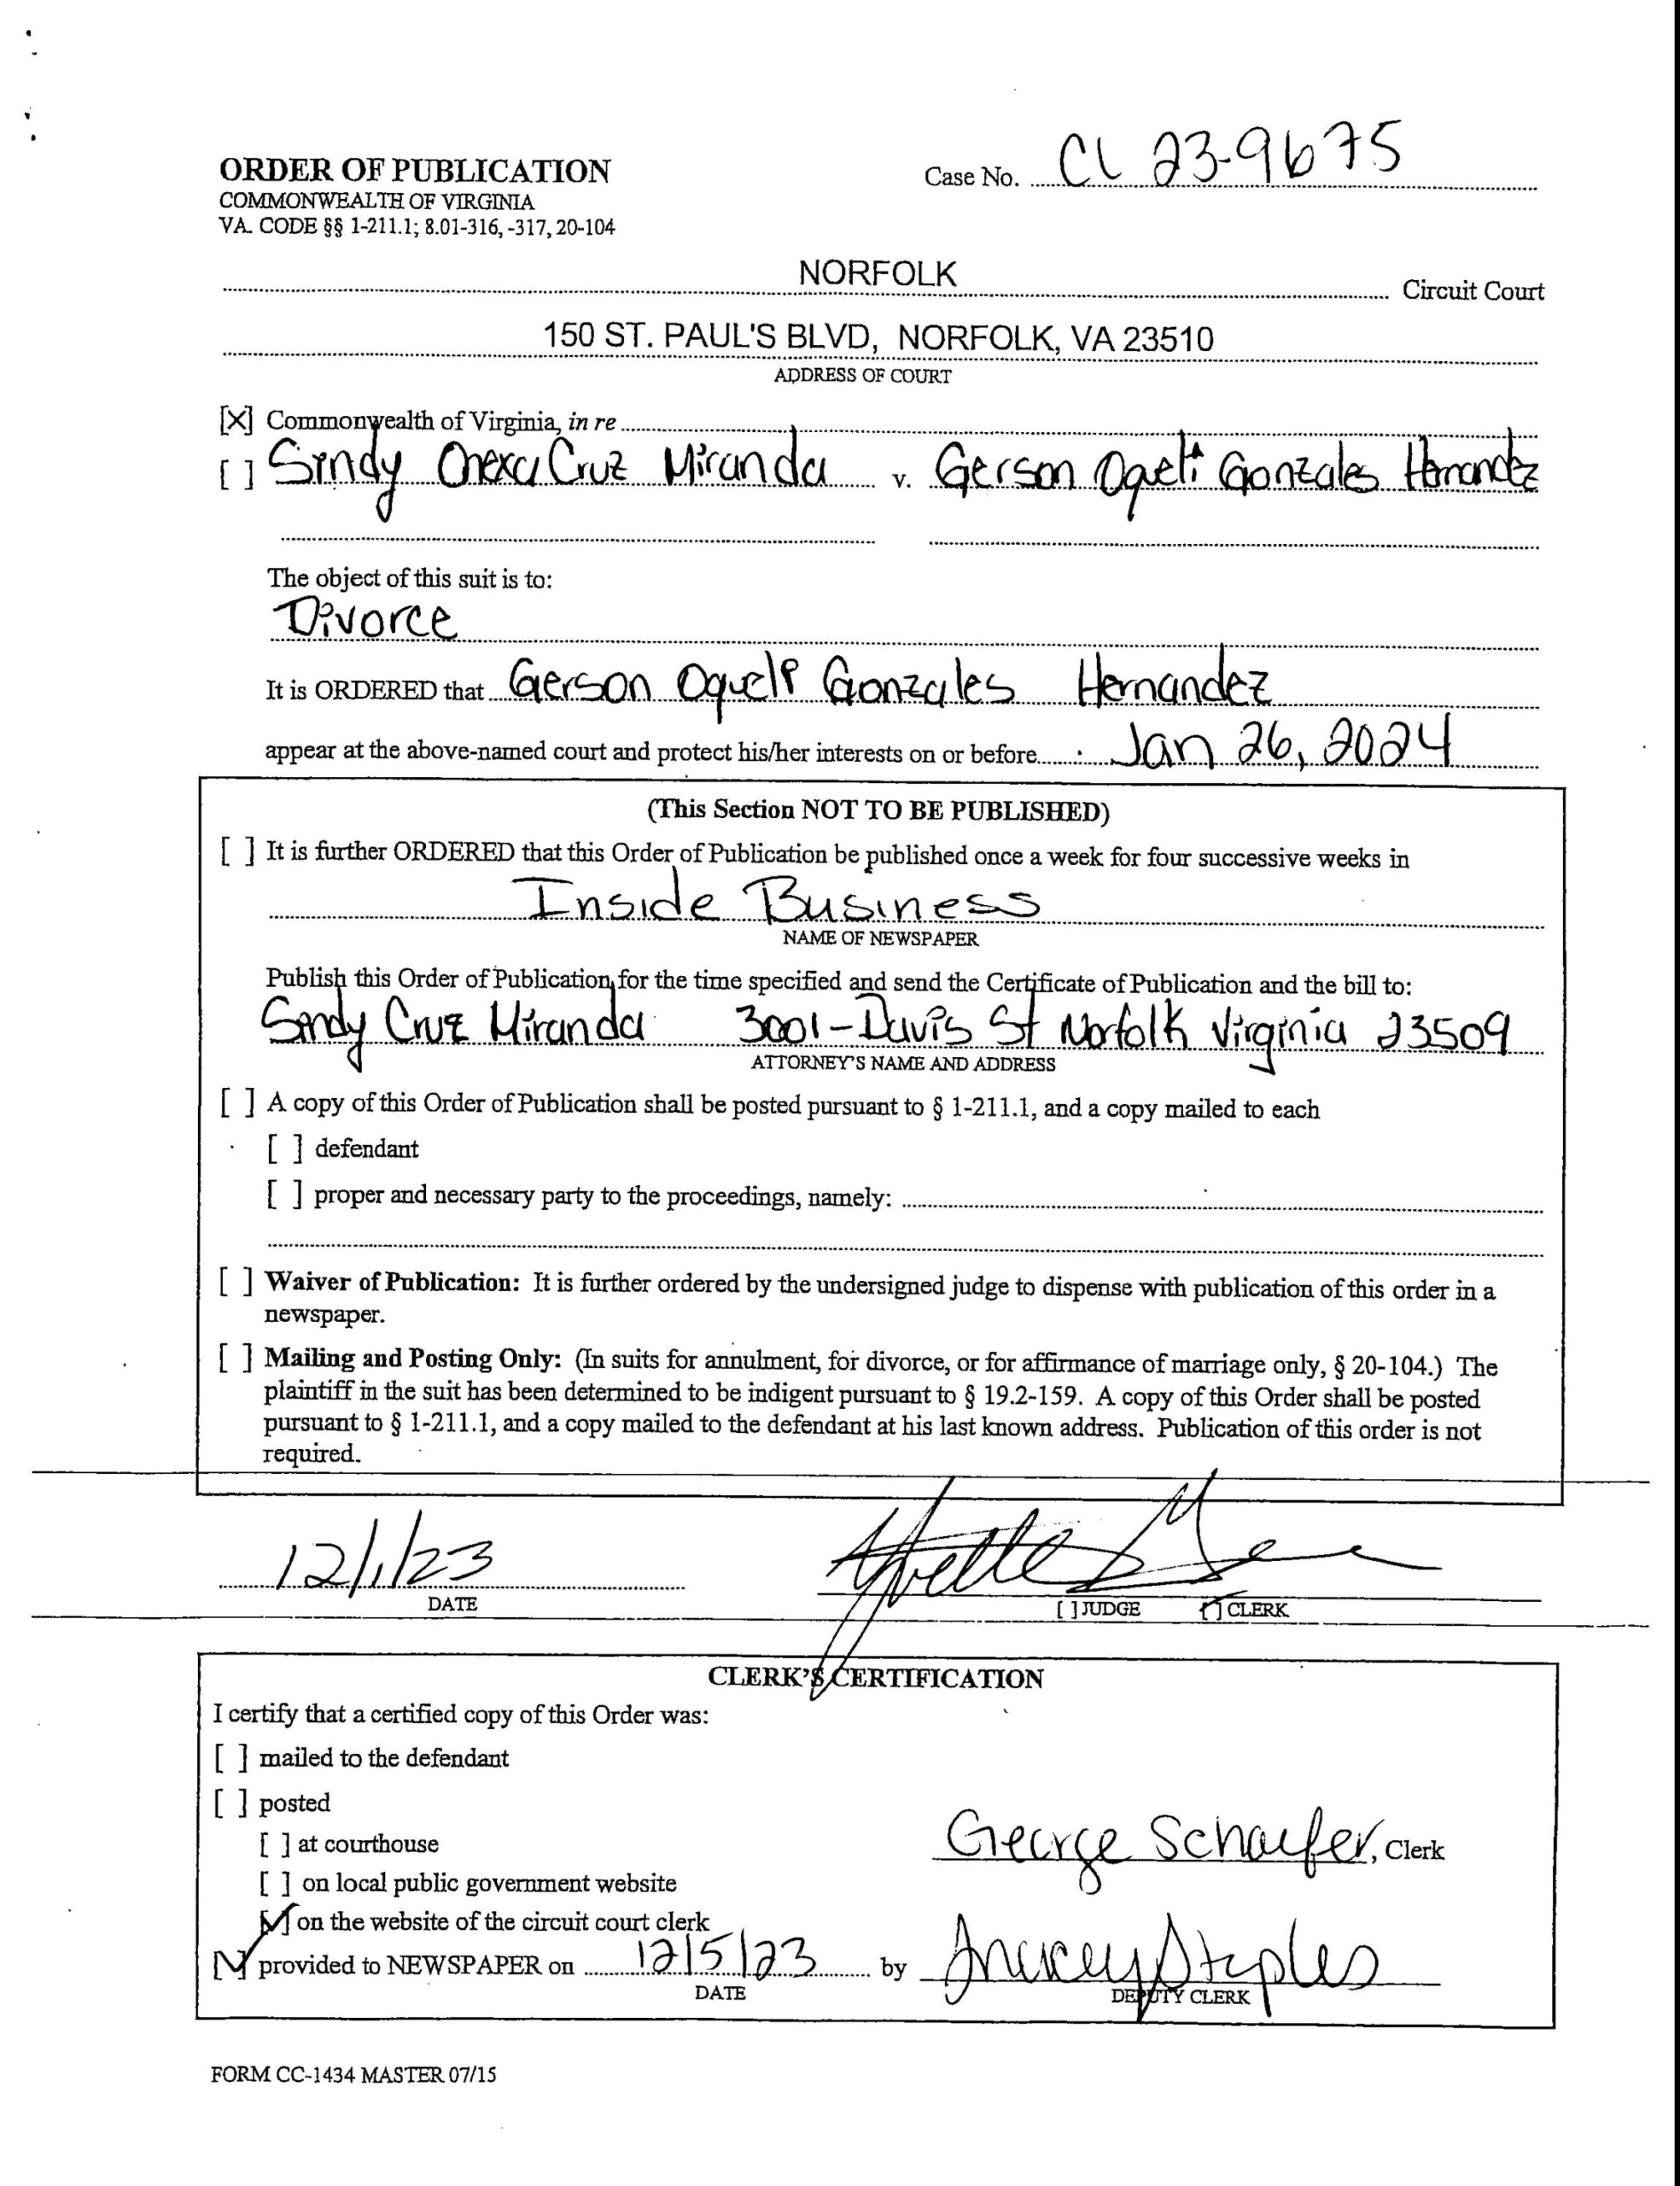 ORDER OF PUBLICATION
COMMONWEALTH OF VIRGINIA
VA. CODE §§ 1-211.1; 8.01-316, -317, 20-104
Case No. CL 23-9675
NORFOLK Circuit Court
150 ST. PAUL'S BLVD, NORFOLK, VA 23510
ADDRESS OF COURT
[X] Commonwealth of Virginia, in re
[ ] Sindy Cruz Miranda v. Gerson Oqueli Gonzales Hernandez
The object of this suit is to:
Divorce
It is ORDERED that Gerson Oqueli Gonzales Hernandez
appear at the above-named court and protect his/her interests on or before Jan 26, 2024
(This Section NOT TO BE PUBLISHED)
[ ] It is further ORDERED that this Order of Publication be published once a week for four successive weeks in
Inside Business
NAME OF NEWSPAPER
Publish this Order of Publication for the time specified and send the Certificate of Publication and the bill to:
Sindy Cruz Miranda 3001-Davis St Norfolk Virginia 23509
ATTORNEY'S NAME AND ADDRESS
[ ] A copy of this Order of Publication shall be posted pursuant to § 1-211.1, and a copy mailed to each
[ ] defendant
[ ] proper and necessary party to the proceedings, namely:
[ ] Waiver of Publication: It is further ordered by the undersigned judge to dispense with publication of this order in a
newspaper.
[ ] Mailing and Posting Only: (In suits for annulment, for divorce, or for affirmance of marriage only, § 20-104.) The
plaintiff in the suit has been determined to be indigent pursuant to § 19.2-159. A copy of this Order shall be posted
pursuant to § 1-211.1, and a copy mailed to the defendant at his last known address. Publication of this order is not
required.
12/1/23
DATE
[ ] JUDGE [✓] CLERK
CLERK'S CERTIFICATION
I certify that a certified copy of this Order was:
[ ] mailed to the defendant
[ ] posted
[ ] at courthouse
[ ] on local public government website
[✓] on the website of the circuit court clerk
George Schaefer, Clerk
[✓] provided to NEWSPAPER on 12/5/23 by Staples
DATE
DEPUTY CLERK
FORM CC-1434 MASTER 07/15